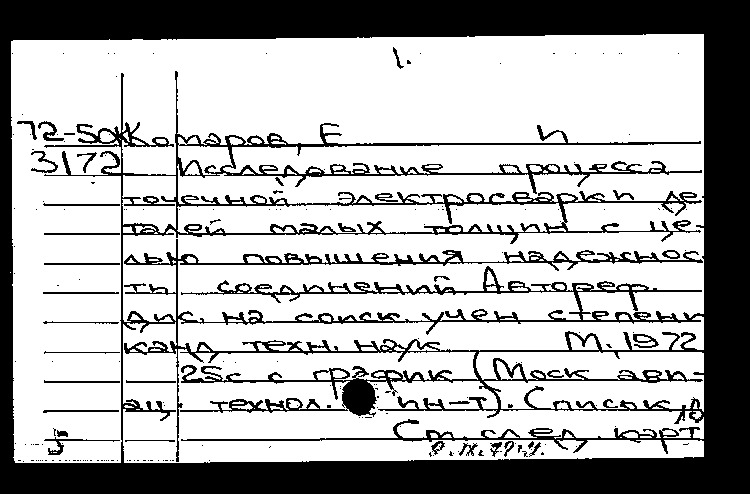 1.
72-50к Комаров, Е И
3172 Исследование процесса
точечной электросварки де-
талей малых толщин с це-
лью повышения надежнос
ти соединений. Автореф.
дис. на соиск. учен степени
канд техн. наук М., 1972
25с с график (Моск ави-
ац. технол. ин-т). Список
5 См. след. карт